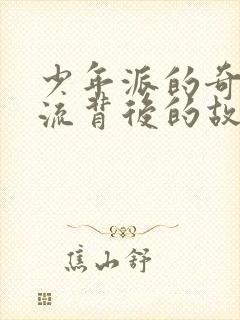 少年派的奇
流背後的故
焦山舒